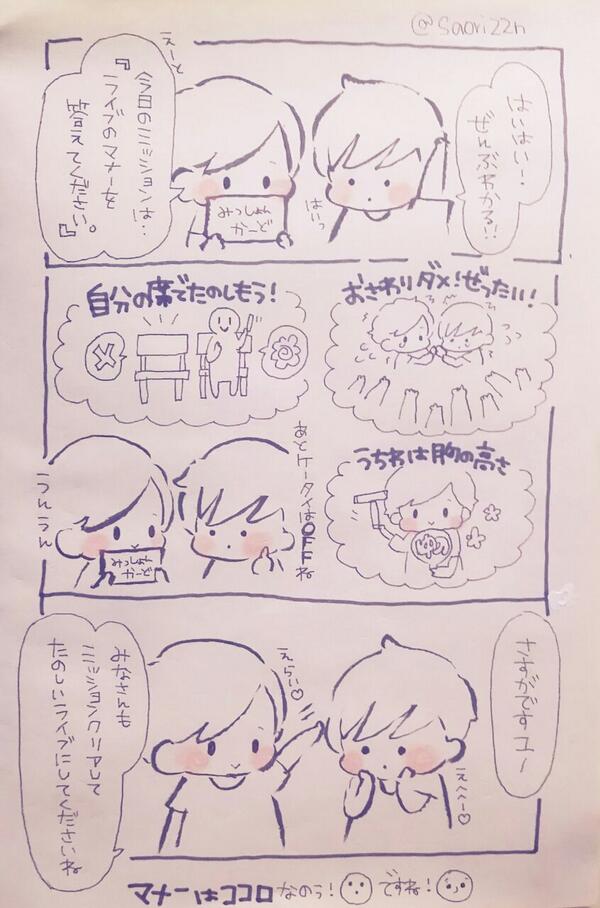 @saori22n
はいはい！
ぜんぶわかる!!
はいっ
えーと
今日のミッションは‥
『ライブのマナーを
答えてください。』
みっしょん
かーど
おさわりダメ！ぜったい！
自分の席でたのしもう！
うちわは胸の高さ
ゆの
あとケータイはOFFね
うんうん
みっしょん
かーど
さすがですユノ
えらい♡
えへへー♡
みなさんも
ミッションクリアして
たのしいライブにしてくださいね
マナーはココロなのぅ！ですね！